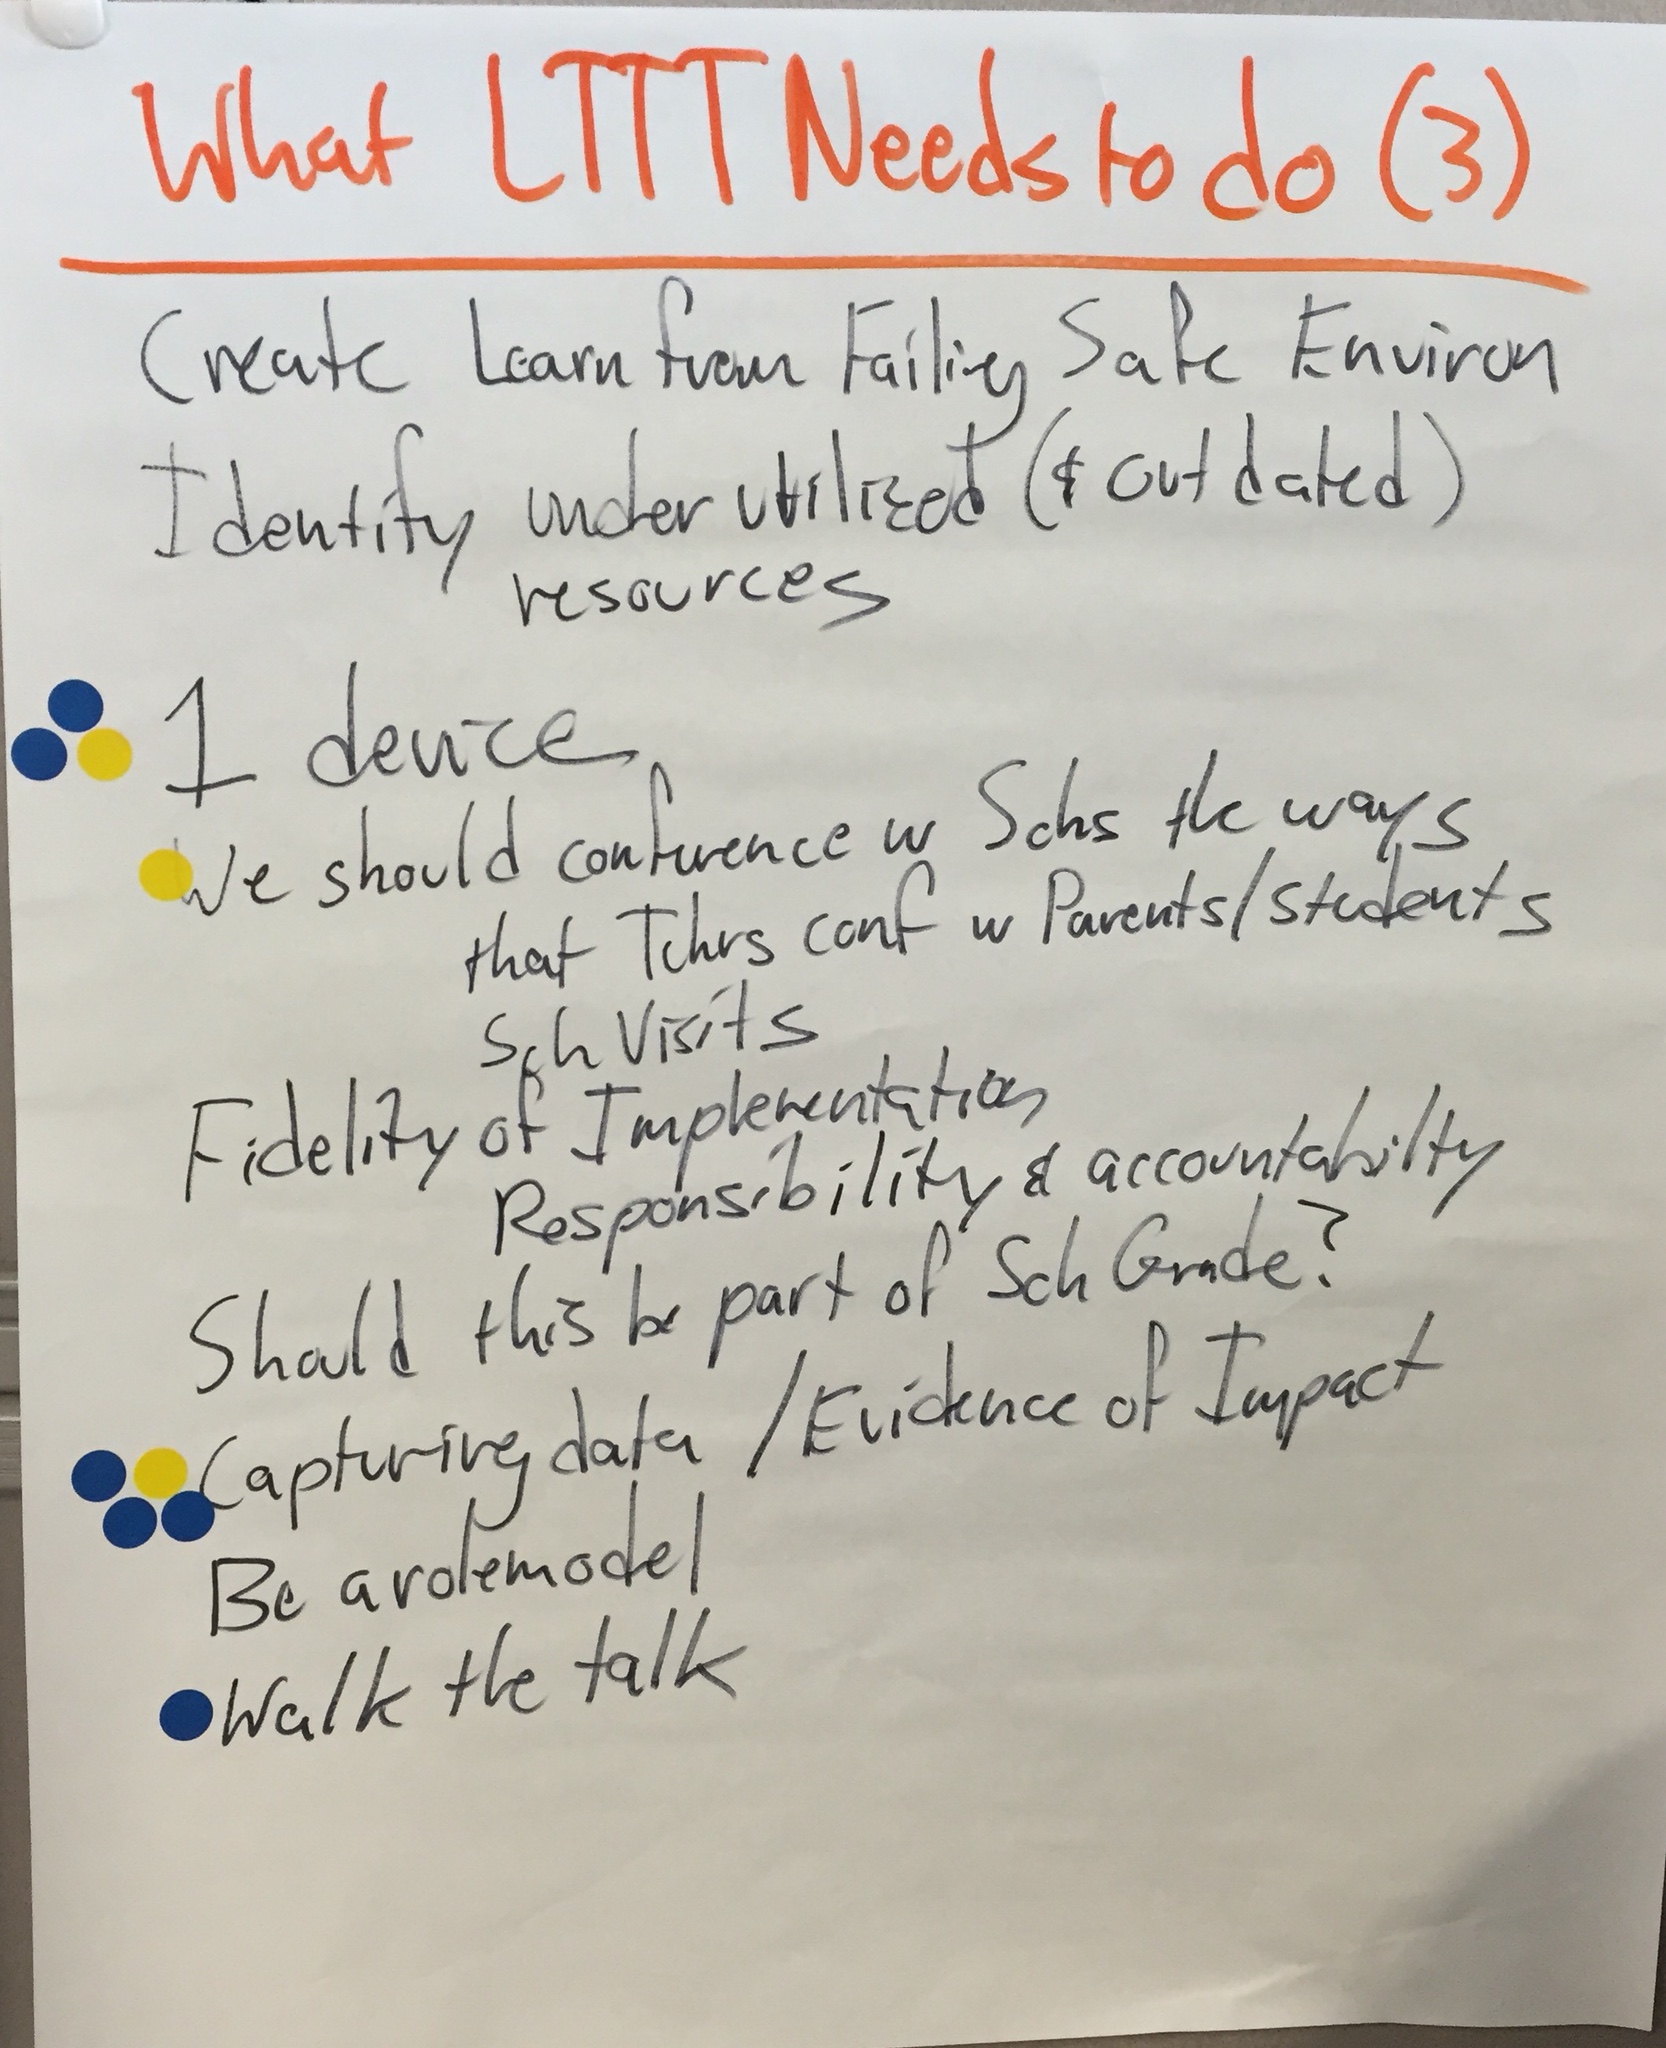 What LTTT Needs to do (3)
Create Learn from Failing Safe Environ
Identify under utilized (& out dated)
resources
1 device
We should conference w Schs the ways
that Tchrs conf w Parents/students
Sch Visits
Fidelity of Implementation
Responsibility & accountabilty
Should this be part of Sch Grade?
Capturing data / Evidence of Impact
Be a rolemodel
Walk the talk